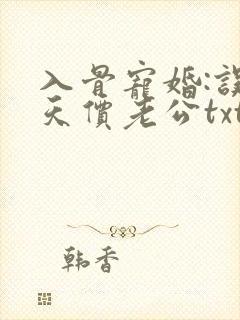 入骨寵婚:誤
天價老公txt
韩香